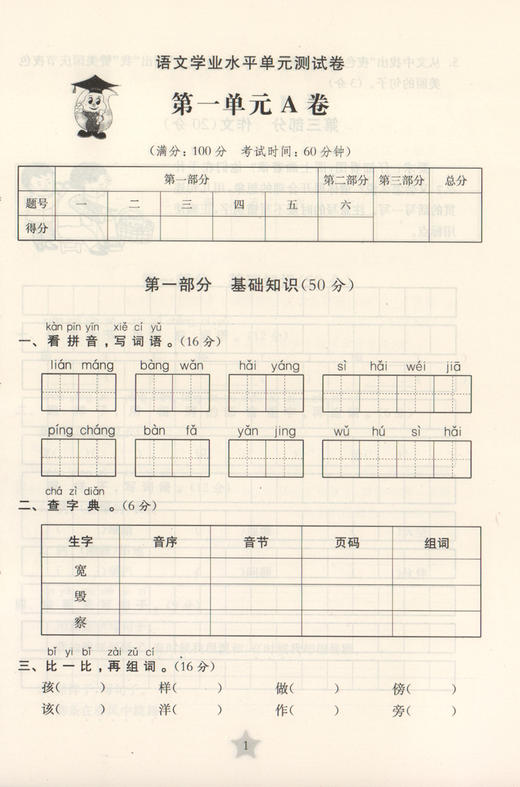 语文学业水平单元测试卷
第一单元A卷
(满分：100分 考试时间：60分钟)
第一部分 第二部分 第三部分 总分
题号 一 二 三 四 五 六
得分
第一部分 基础知识(50分)
kàn pīn yīn xiě cí yǔ
一、看拼音，写词语。(16分)
lián máng bàng wǎn hǎi yáng sì hǎi wéi jiā
píng cháng bàn fǎ yǎn jing wǔ hú sì hǎi
chá zì diǎn
二、查字典。(6分)
生字 音序 音节 页码 组词
宽
毁
察
bǐ yi bǐ zài zǔ cí
三、比一比，再组词。(16分)
孩( ) 样( ) 做( ) 傍( )
该( ) 洋( ) 作( ) 旁( )
1